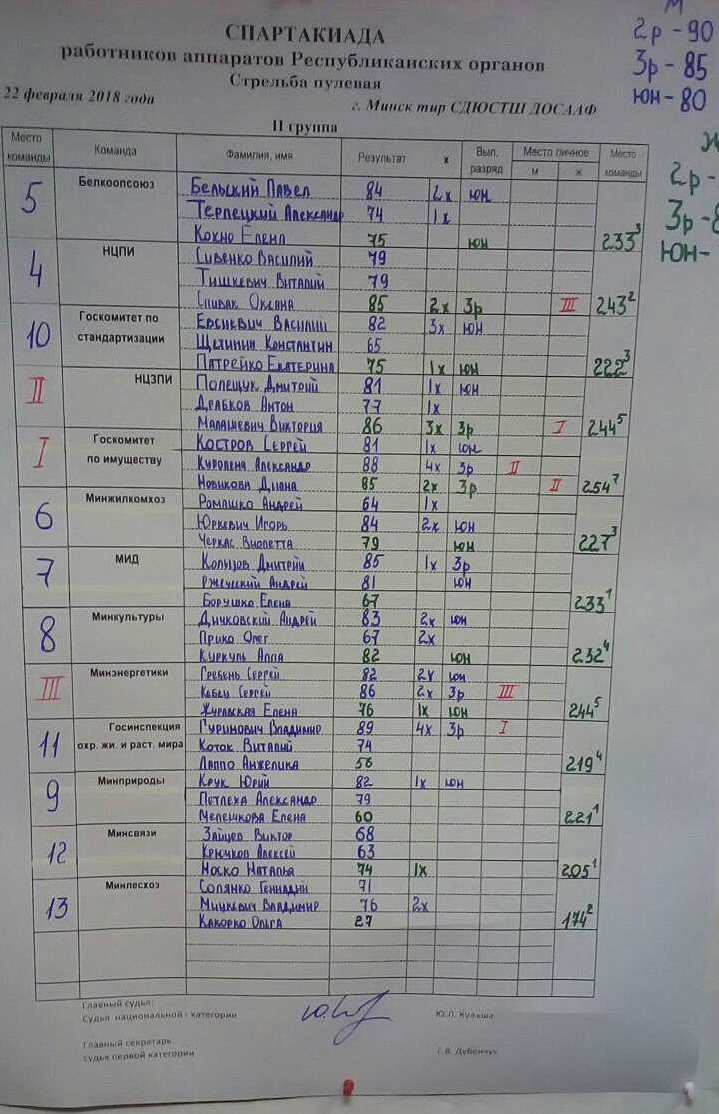 М
2р - 90
3р - 85
юн - 80
Ж
2р -
3р - 8
юн -
СПАРТАКИАДА
работников аппаратов Республиканских органов
Стрельба пулевая
22 февраля 2018 года г. Минск тир СДЮСТШ ДОСААФ
II группа
Место команды Команда Фамилия, имя Результат х Вып. разряд Место личное м ж Место команды
5 Белкоопсоюз Бельский Павел 84 2х юн
Терпецкий Александр 74 1х
Кохно Елена 75 юн 233³
4 НЦПИ Сивенко Василий 79
Тишкевич Виталий 79
Спивак Оксана 85 2х 3р III 243²
10 Госкомитет по стандартизации Евсиевич Василий 82 3х юн
Щепинин Константин 65
Патрейко Екатерина 75 1х юн 222³
II НЦЗПИ Полещук Дмитрий 81 1х юн
Драбков Антон 77 1х
Малашевич Виктория 86 3х 3р I 244⁵
I Госкомитет по имуществу Костров Сергей 81 1х юн
Александр 88 4х 3р II
Новикова Диана 85 2х 3р II 254⁷
6 Минжилкомхоз Ромашко Андрей 64 1х
Юркевич Игорь 84 2х юн
Черкас Виолетта 79 юн 227³
7 МИД Дмитрий 85 1х 3р
Андрей 81 юн
Борушко Елена 67 233¹
8 Минкультуры Андрей 83 2х юн
Прико Олег 67 2х
Куркуль Алла 82 юн 232⁴
III Минэнергетики Гребень Сергей 82 2х юн
Кебец Сергей 86 2х 3р III
Журавская Елена 76 1х юн 244⁵
11 Госинспекция охр. жи. и раст. мира Гуринович Владимир 89 4х 3р I
Коток Виталий 74
Лаппо Анжелика 56 219⁴
9 Минприроды Крук Юрий 82 1х юн
Петлеха Александр 79
Мелешкова Елена 60 221¹
12 Минсвязи Зайцев Виктор 68
Крючков Алексей 63
Носко Наталья 74 1х 205¹
13 Минлесхоз Солянко Геннадий 71
Мицкевич Владимир 76 2х
Какорко Ольга 27 174²
Главный судья:
Судья национальной категории Ю.Л. Кулеша
Главный секретарь:
судья первой категории Е.В. Дубенчук